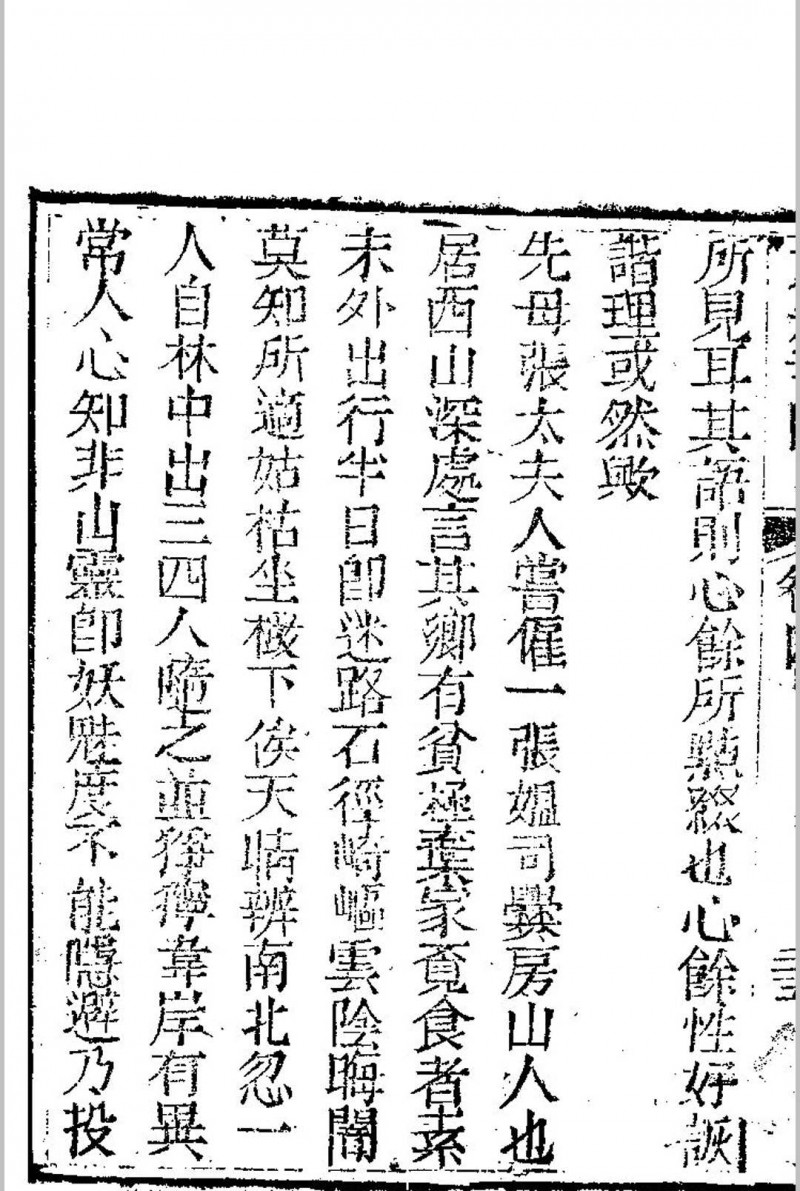 卷四
所見耳其語則心餘所點綴也心餘性好詼
諧理或然歟
先母張太夫人嘗僱一張媼司爨房山人也
居西山深處言其鄉有貧極棄家覓食者素
未外出行半日卽迷路石徑崎嶇雲陰晦闇
莫知所適姑枯坐樹下俟天晴辨南北忽一
人自林中出三四人隨之並猙獰偉岸有異
常人心知非山靈卽妖魅度不能隱避乃投